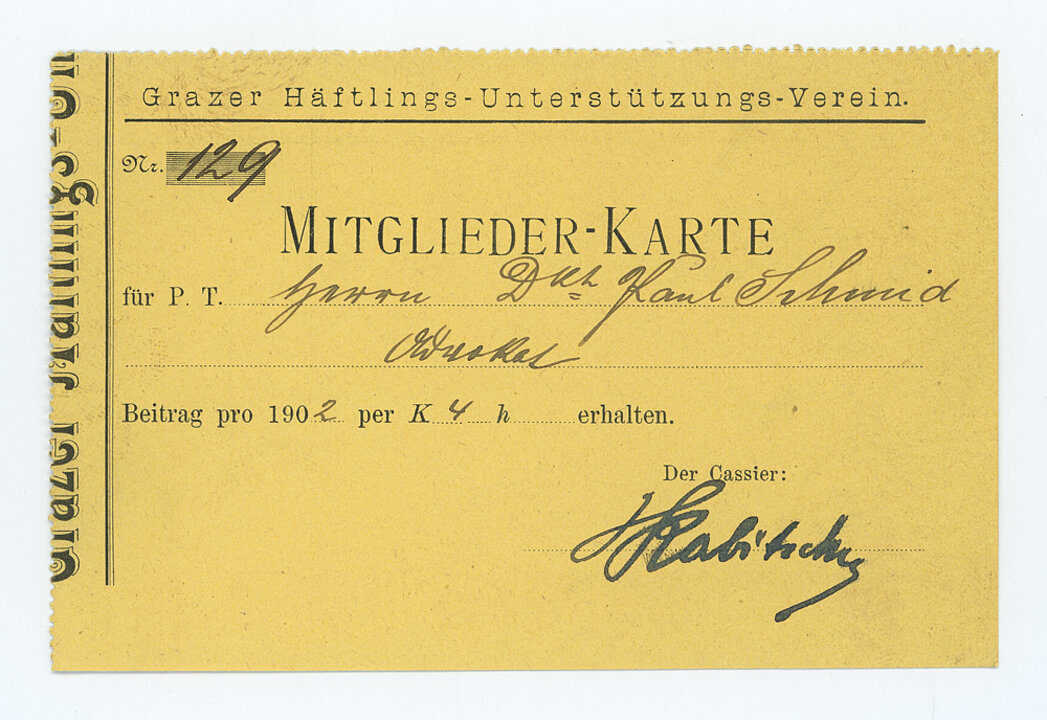 Grazer Häftlings-Unterstützungs-Verein.
Nr. 129
MITGLIEDER-KARTE
für P. T. Herrn Dr Paul Schmid
Advokat
Beitrag pro 1902 per K 4 h erhalten.
Der Cassier:
Grazer